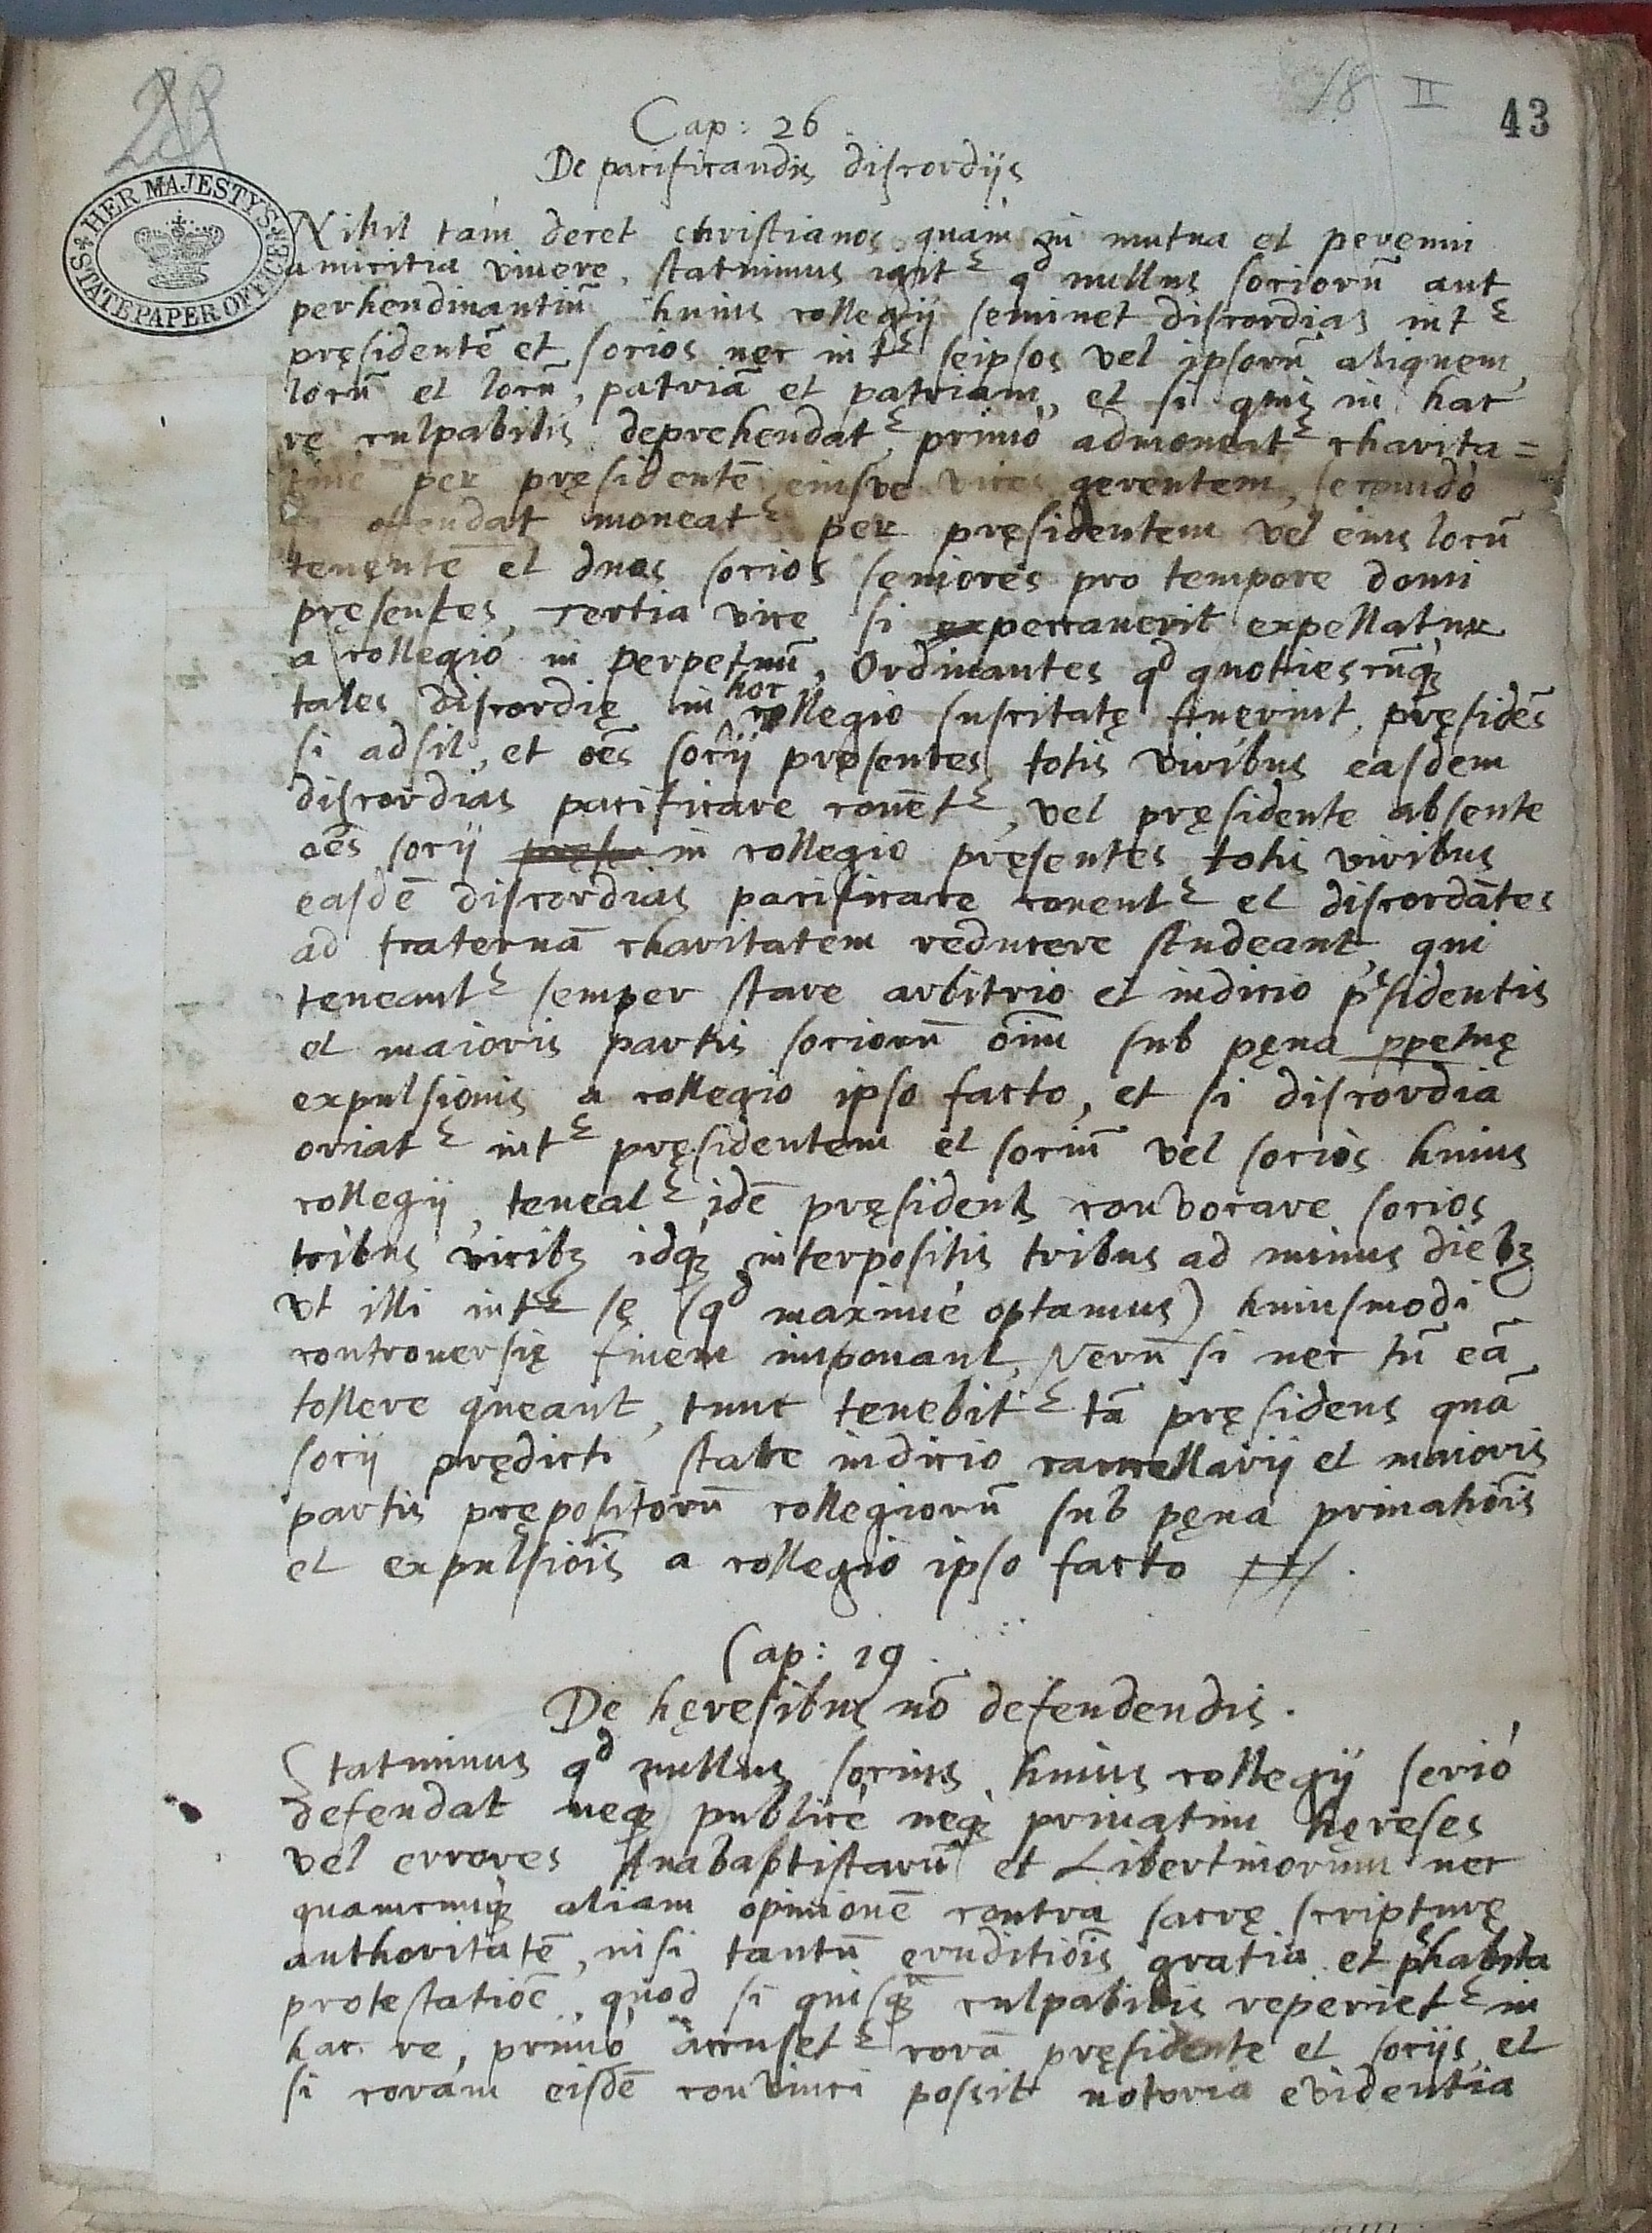 18 II
43
HER MAJESTY'S
STATE PAPER OFFICE
Cap: 26.
De pacificandis discordijs
Nihil tam decet christianos quàm in mutua et perenni
amicitia viuere, statuimus igit~ qd nullus sociorū aut
perhendinantiū huius collegij seminet discordias int~
pręsidentē et socios nec int~ seipsos vel ipsorū aliquem,
locū et locū, patriā et patriam, et si quis in hac
re culpabilis deprehendat~ primò admoneat~ charita=
tiue per pręsidentē eiusve vices gerentem, secundò
offendat moneat~ per pręsidentem vel eius locū
tenentē et duos socios seniores pro tempore domi
pręsentes, tertia vice si ex peccauerit expellatur
a collegio in perpetuū, Ordinantes qd quotiescūq;
tales discordię in hoc collegio suscitatę fuerint, pręsidēs
si adsit, et oēs socij pręsentes totis viribus easdem
discordias pacificare conēt~, vel pręsidente absente
oēs socij pręse in collegio pręsentes totis viribus
easdē discordias pacificare conent~ et discordātes
ad fraternā charitatem reducere studeant, qui
teneant~ semper stare arbitrio et iudicio p~sidentis
et maioris partis sociorū oīm sub pęna ppetuę
expulsionis a collegio ipso facto, et si discordia
oriat~ int~ pręsidentem et sociū vel socios huius
collegij, teneat~ idē pręsidens convocare socios
tribus vicib; idq; interpositis tribus ad minus dieb;
vt illi int~ se (qd maximè optamus) huiusmodi
controuersię finem imponant, Verū si nec tū eā
tollere queant, tunc tenebit~ tā pręsidens quā
socij prędicti stare iudicio cancellarij et maioris
partis prępositorū collegiorū sub pęna priuatiōis
et expulsiōis a collegio ipso facto.
Cap: 19.
De hęresibus nō defendendis.
Statuimus qd nullus socius huius collegij seriò
defendat neq; publicè neq; priuatim hęreses
vel errores Anabaptistarū et Libertinorum nec
quamcunq; aliam opinionē contra sacrę scripturę
authoritatē, nisi tantū eruditiōis gratia et p~habita
protestatiōe, quod si quisq; culpabilis reperiet~ in
hac re, primò accuset~ corā pręsidente et socijs, et
si coram eisdē convinci possit notoria evidentia